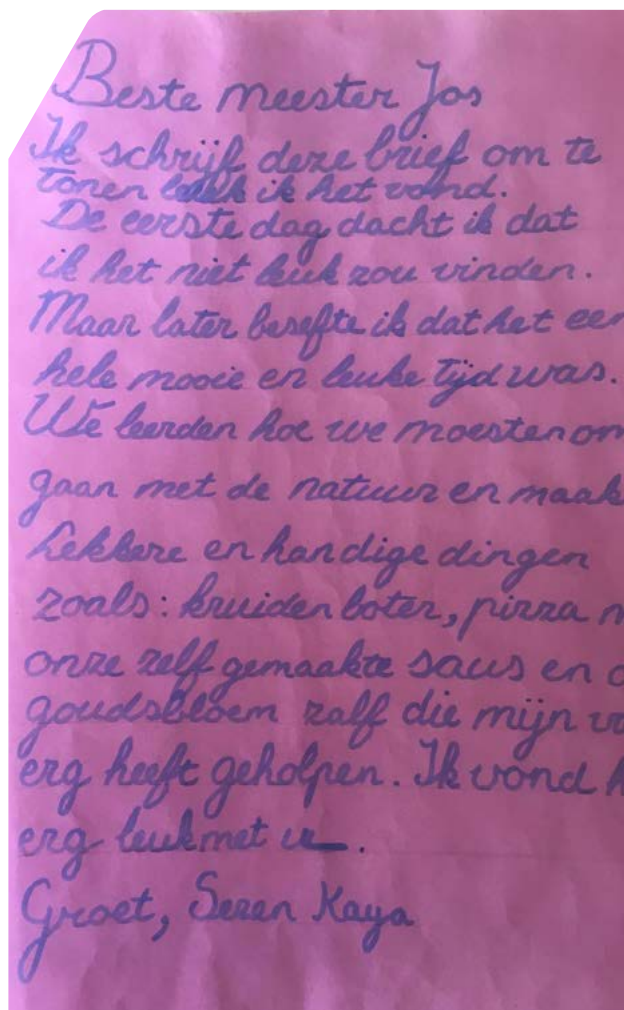 Beste meester Jos
Ik schrijf deze brief om te
tonen leuk ik het vond.
De eerste dag dacht ik dat
ik het niet leuk zou vinden.
Maar later besefte ik dat het een
hele mooie en leuke tijd was.
We leerden hoe we moesten om
gaan met de natuur en maak
Lekkere en handige dingen
zoals: kruidenboter, pizza
onze zelf gemaakte saus en
goudsbloem zalf die mijn
erg heeft geholpen. Ik vond
erg leuk met u.
Groet, Seren Kaya